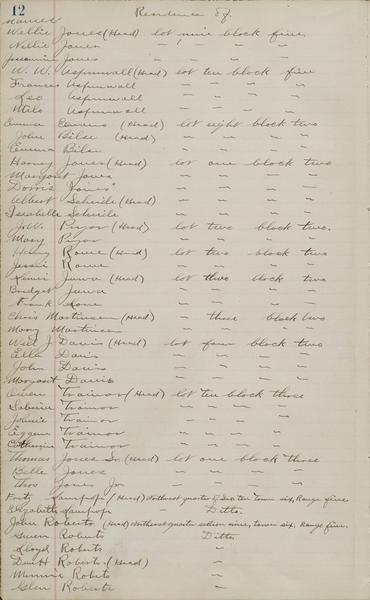 12 Residence of.
Names
Willie Jones (Head) lot nine block five
Nellie Jones — — — —
Jones — — — —
W. W. Aspinwall (Head) lot ten block five
Frances Aspinwall — — — —
Leo Aspinwall — — — —
Milo Aspinwall — — — —
Emma (Head) lot eight block two
John Bilse (Head) — — — —
Emma Bilse — — — —
Harvey Jones (Head) lot one block two
Margaret Jones — — — —
Dorris Jones " — — — —
Albert Scheible (Head) — — — —
Isabelle Scheible — — — —
J. W. Pryor (Head) lot two block two.
Mary Pryor — — — —
Henry Rowe (Head) lot two block two
Jessie Rowe — — — —
(Head) lot three block two
Bridget — — — —
Frank — — — —
Chris Mortinsen (Head) — three block two
Mary Mortinsen — — — —
Will J Davis (Head) lot four block two
Ella Davis — — — —
John Davis — — — —
Margaret Davis — — — —
Owen Trainor (Head) lot ten block three
Sabina Trainor — — — —
Trainor — — — —
Eugene Trainor — — — —
Catherine Trainor — — — —
Thomas Jones Sr. (Head) lot one block three
Belle Jones — — — —
Thos Jones Jr — — — —
Fritz (Head) Northwest quarter of Sec ten Town six, Range five.
Elizabeth — Ditto.
John Roberts (Head) Northwest quarter section nine, town six, Range five.
Gwen Roberts Ditto
Lloyd Roberts —
Dan H Roberts (Head) —
Minnie Roberts —
Glen Roberts —